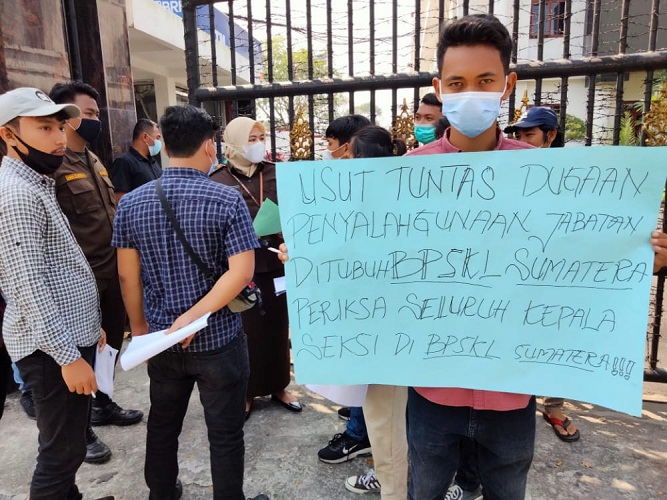 USUT TUNTAS DUGAAN
PENYALAHGUNAAN JABATAN
DITUBUH BPSKL SUMATERA
PERIKSA SELURUH KEPALA
SEKSI DI BPSKL SUMATERA!!!